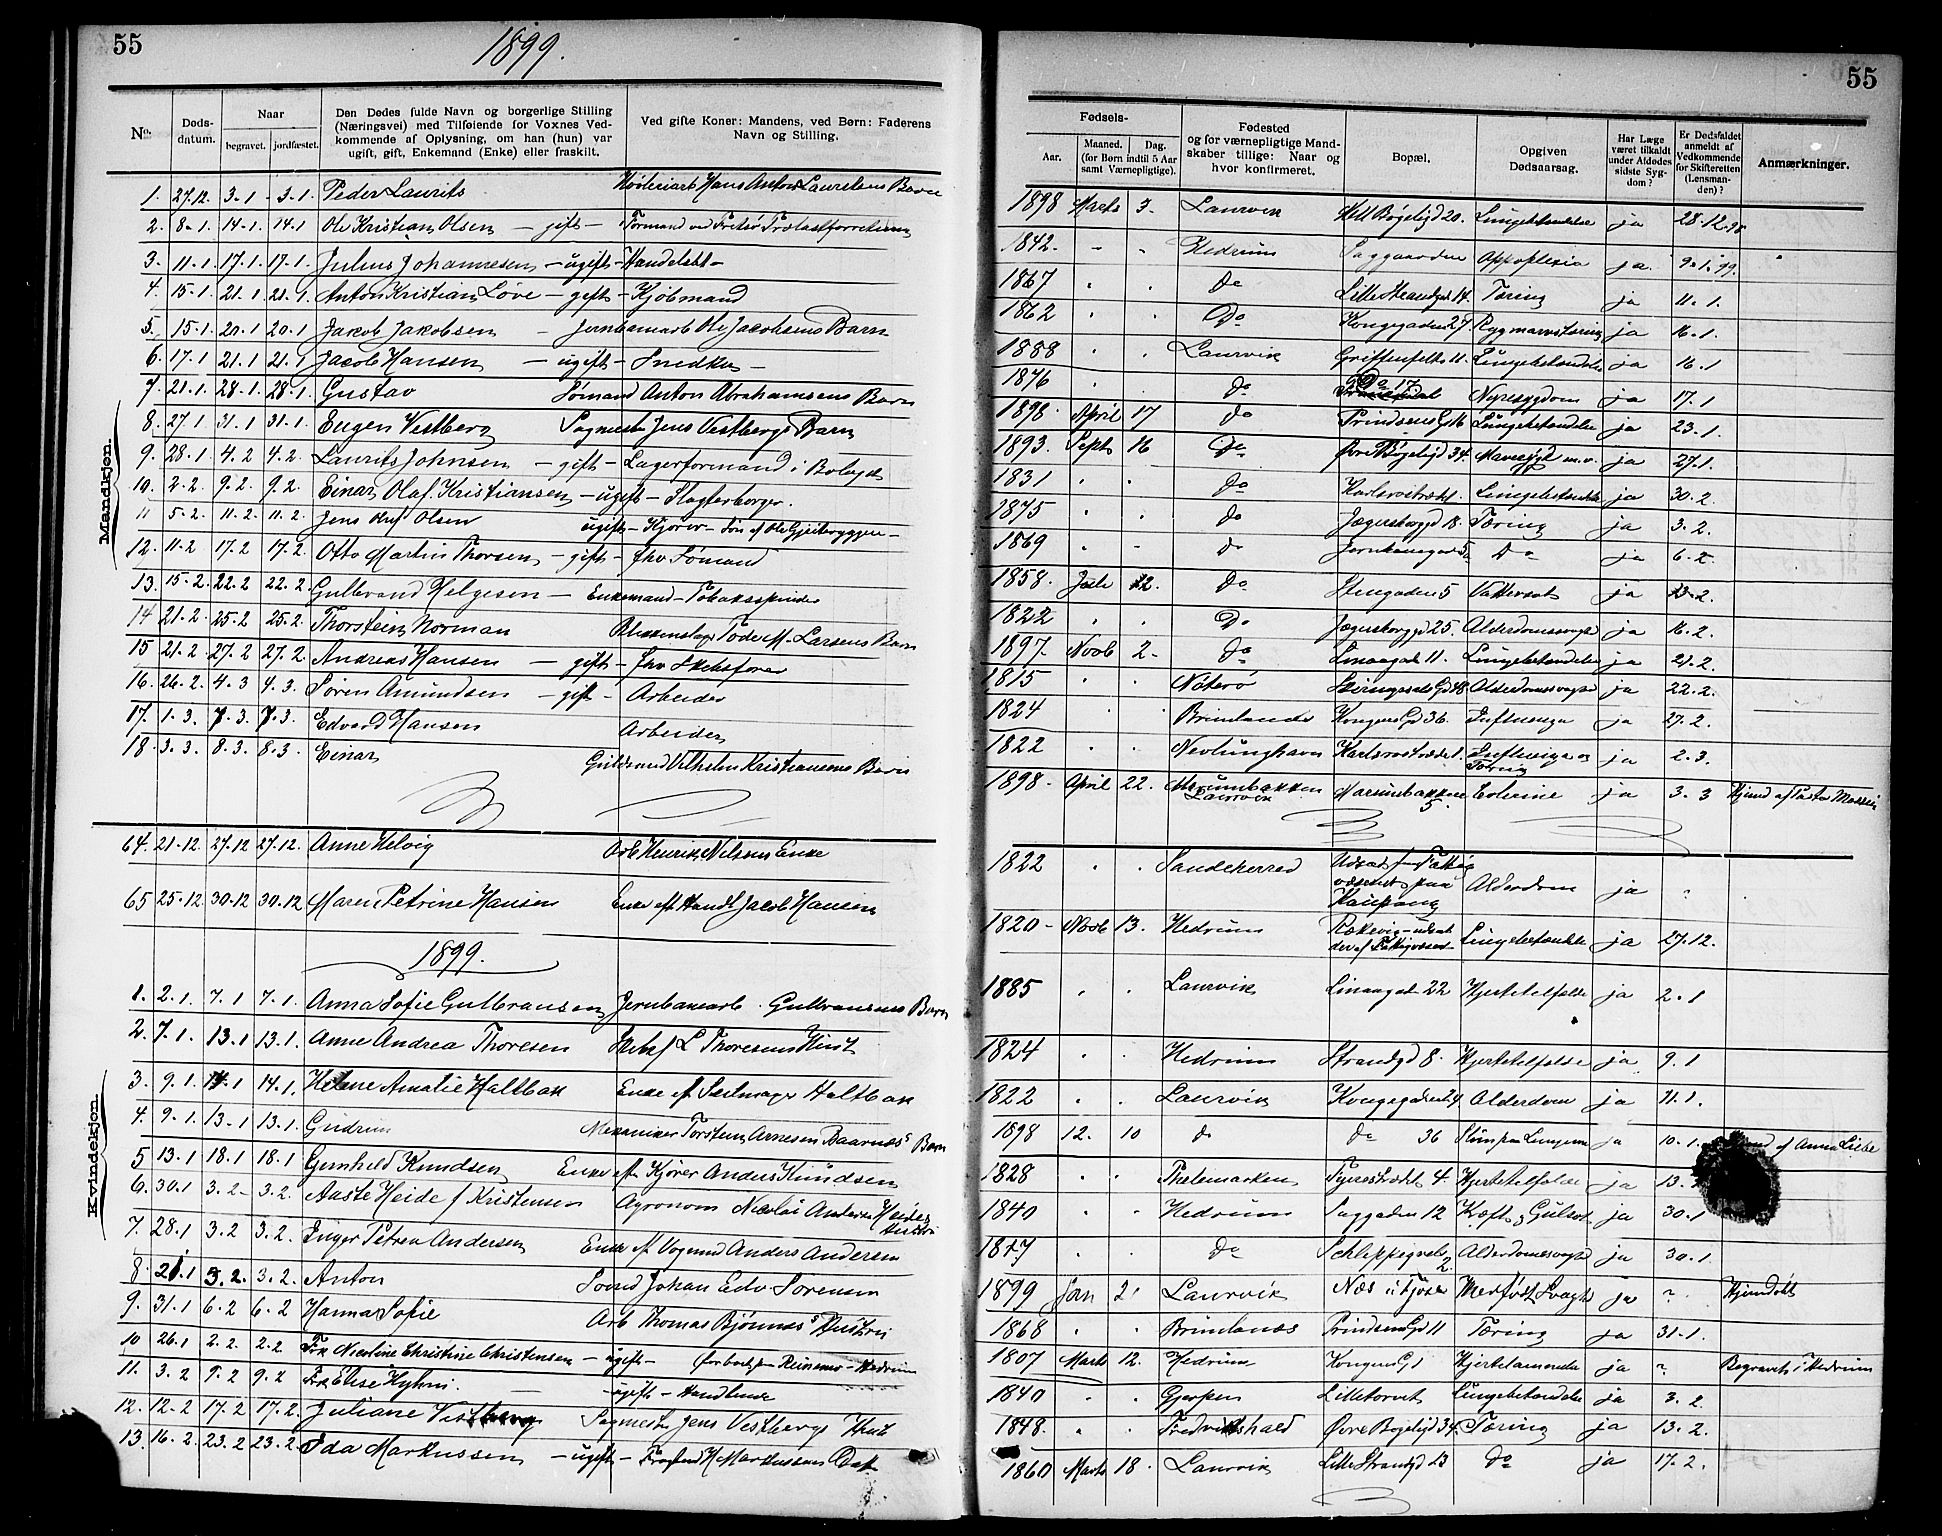 55
1899.
55
No.
Døds-datum.
Naar
begravet.
jordfæstet.
Den Dødes fulde Navn og borgerlige Stilling (Næringsvei) med Tilføiende for Voxnes Vedkommende af Oplysning, om han (hun) var ugift, gift, Enkemand (Enke) eller fraskilt.
Ved gifte Koner: Mandens, ved Børn: Faderens Navn og Stilling.
Fødsels-
Aar.
Maaned. Dag.
(for Børn indtil 5 Aar samt Værnepligtige).
Fødested og for værnepligtige Mandskaber tillige: Naar og hvor konfirmeret.
Bopæl.
Opgiven Dødsaarsag.
Har Læge været tilkaldt under Afdødes sidste Sygdom?
Er Dødsfaldet anmeldt af Vedkommende for Skifteretten (Lensmanden)?
Anmærkninger.
Mandkjøn.
1. 27.12. 3-1 - 3-1. Peder Laurits Hans Anton Laurelens Barn
2. 8-1. 14-1. 14-1 Ole Kristian Olsen - gift - Formand ved Fritsø
3. 11-1. 17.1. 17-1. Julius Johannesen - ugift - Handelsbt -
4. 15-1. 21-1. 21-1. Anton Kristian Löve - gift - Kjöbmand
5. 15-1. 20-1 20-1 Jakob Jakobsen - Jernbanearb Ole Jacobsens Barn
6. 17-1 21-1 21-1 Jacob Hansen - ugift - Snedker -
7. 21-1. 28-1. 28-1. Gustav Sömand Anton Abrahamsens Barn
8. 27.1 31-1 31-1. Eugen Vestberg Sagmester Jens Vestbergs Barn
9. 28-1. 4-2 4-2. Laurits Johnsen - gift - Lagerformand i
10. 2-2. 9-2. 9-2. Einar Olaf Kristiansen - ugift - Slagterborger.
11 5-2. 11-2. 11-2. Jens Olsen ugift - Kjører - Søn af Ole
12. 11-2 17-2 17-2. Otto Martin Thorsen - gift - fhv Sömand
13. 15-2. 22-2 22-2. Gulbrand Helgesen - Enkemand - Tobaksspinder
14 21-2. 25-2 25-2. Thorstein Norman Blikkenslager Tode M. Larsens Barn
15 21-2. 27-2 27-2. Andreas Hansen - gift - fhv Skibsfører
16. 26-2. 4-3 4-3. Sören Amundsen - gift - Arbeider
17. 1-3. 7-3. 7-3. Edvard Hansen Arbeider
18. 3-3. 8-3. 8-3. Einar Guldsmed Vilhelm Kristiansens Barn
64. 21-12. 27.12 27.12. Anne Helvig Arb Henrik Nilsens Enke
65 25-12 30-12 30-12 Maren Petrine Hansen Enke eft Handl Jacob Hansen
1899.
Kvindekjøn.
1. 2-1. 7-1 7-1. Anna Sofie Gulbransen Jernbanearb. Gulbransens Barn
2. 7-1. 13-1 13-1. Anne Andrea Thoresen Skibsf L Thoresens Hust
3. 9-1. 14-1 14-1. Helene Amalie Holtbak Enke ef Seilmager Holtbak
4. 9-1. 13-1 13-1. Gudrun Mekaniker Torstein Arnesen Baarnæs's Barn
5 13-1 18-1 18-1 Gunhild Knudsen Enke eft Kjører Anders Knudsen
6. 30.1 3-2- 3-2. Aaste Heide f Kristensen Agronom Nicolai Andersen Heides Hustru
7. 28-1. 3-2 3-2. Inger Petrea Andersen Enke ef Anders Andersen
8. 21-1 3-2. 3-2. Anton Johan Edv Sorensen
9. 31-1 6-2 6-2 Hanna Sofie Arb Thomas Bjönnes's Hustru
10 26-1 2-2. 2-2 Frk Nicoline Christine Christensen - ugift - Hedrum
11. 3-2 9-2 9-2 Frk Elise Hyhni. - ugift - Handlende
12. 12-2 17-2 17-2. Juliane Vestberg Sagmester Jens Vestbergs Hust
13. 16-2. 23-2 23-2. Ida Markussen - ugift - H Markussens Dat
1898 Marts 3. Laurvik 20. Lungebetændelse ja 28-12-98
1842. - " Hedrum Saggaarden Appoplexia ja. 9-1-99.
1867 " " Do Lille Strandgd 14. Tæring ja 11-1.
1862 " " Do Kongegaden 27. Rygmarvstæring ja 16-1.
1888 " " Laurvik Griffenfelts 11. Lungebetændelse ja 16-1
1876 " Do 17. Nyresygdom ja 17.1
1898. April 17 do Prindsens G 16 Lungebetændelse ja 23-1.
1893. Sept 16 Do Øvre Bögeligd 34. Mavesygd m.v. ja 27.1.
1831 " " do Lungebetændelse ja 30-2.
1875 " " do Jægersborggd 18. Tæring ja 3-2.
1869 " - do Jernbanegaden 5. Do ja 6-2.
1858. Juli 12. Do Stengaden 5 Vattersot ja 13-2.
1822 " " Do Jægersborggd 25. Alderdomssvaghed ja 16-2.
1897. Novb 2- do Linaagad 11. Lungebetændelse ja 21-2.
1815 " " Nöterö 48. Alderdomssvaghed ja 22-2.
1824 " Brunlanæs Kongens Gd 36. Influenza ja 27-2.
1822 " " Nevlunghavn 1. Influenza og Tæring ja 2-3.
1898- April 22. Marumbakken Laurvik Marumbakken 5. ja 3-3 Hjemd af Pastor
1822 " " Sandeherred Udsat f. Fattigvæsenet paa Kaupang Alderdom ja "
1820 - Novb 13. Hedrum Lungebetændelse ja 27-12.
1885 " " Laurvik Linaagad 22 Hjertetilfælde ja 2-1
1824 " " Hedrum Strandgd 8. Hjertetilfælde ja 9-1
1822 " " Laurvik Kongegaden 24. Alderdom ja 11-1.
1898 12. 10 do do 36 Slim paa Lungerne ja 10-1. af Anna Lisbe
1828 " " Thelemarken Fyrestrædet 4. Hjertetilfælde ja 13-
1840 " " Hedrum Saggaden 12 Kræft og Gulsot ja 30-1
1817 " do 2 Alderdomssvaghed ja 30-1.
1899 Jan 2' Laurvik Næs i Tjöse Medfødt Svagh ja " Hjemdöbt
1868 " " Brunlanæs Prindsens Gd 11 Tæring ja 31-1.
1807 Marts 12. Hedrum Kongens G 1 Hjertelammelse ja " Begravet i Hedrum
1840 " " Gjerpen Lilletorvet Lungebetændelse ja 3-2
1848. " " Fredrikshald Øvre Bögeligd 34. Tæring ja 13-2.
1860 Marts 18. Laurvik Lille Strandgd 23 do ja 17-2.